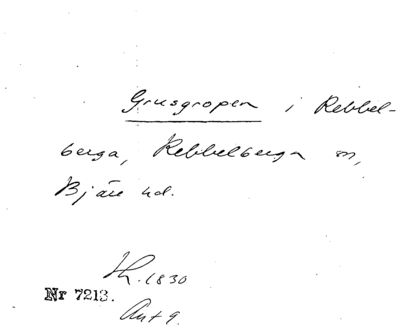 Grusgropen i Rebbel-
berga, Rebbelberga sn,
Bjäre hd.
Th. 1830
Nr 7213.
Ant 9.